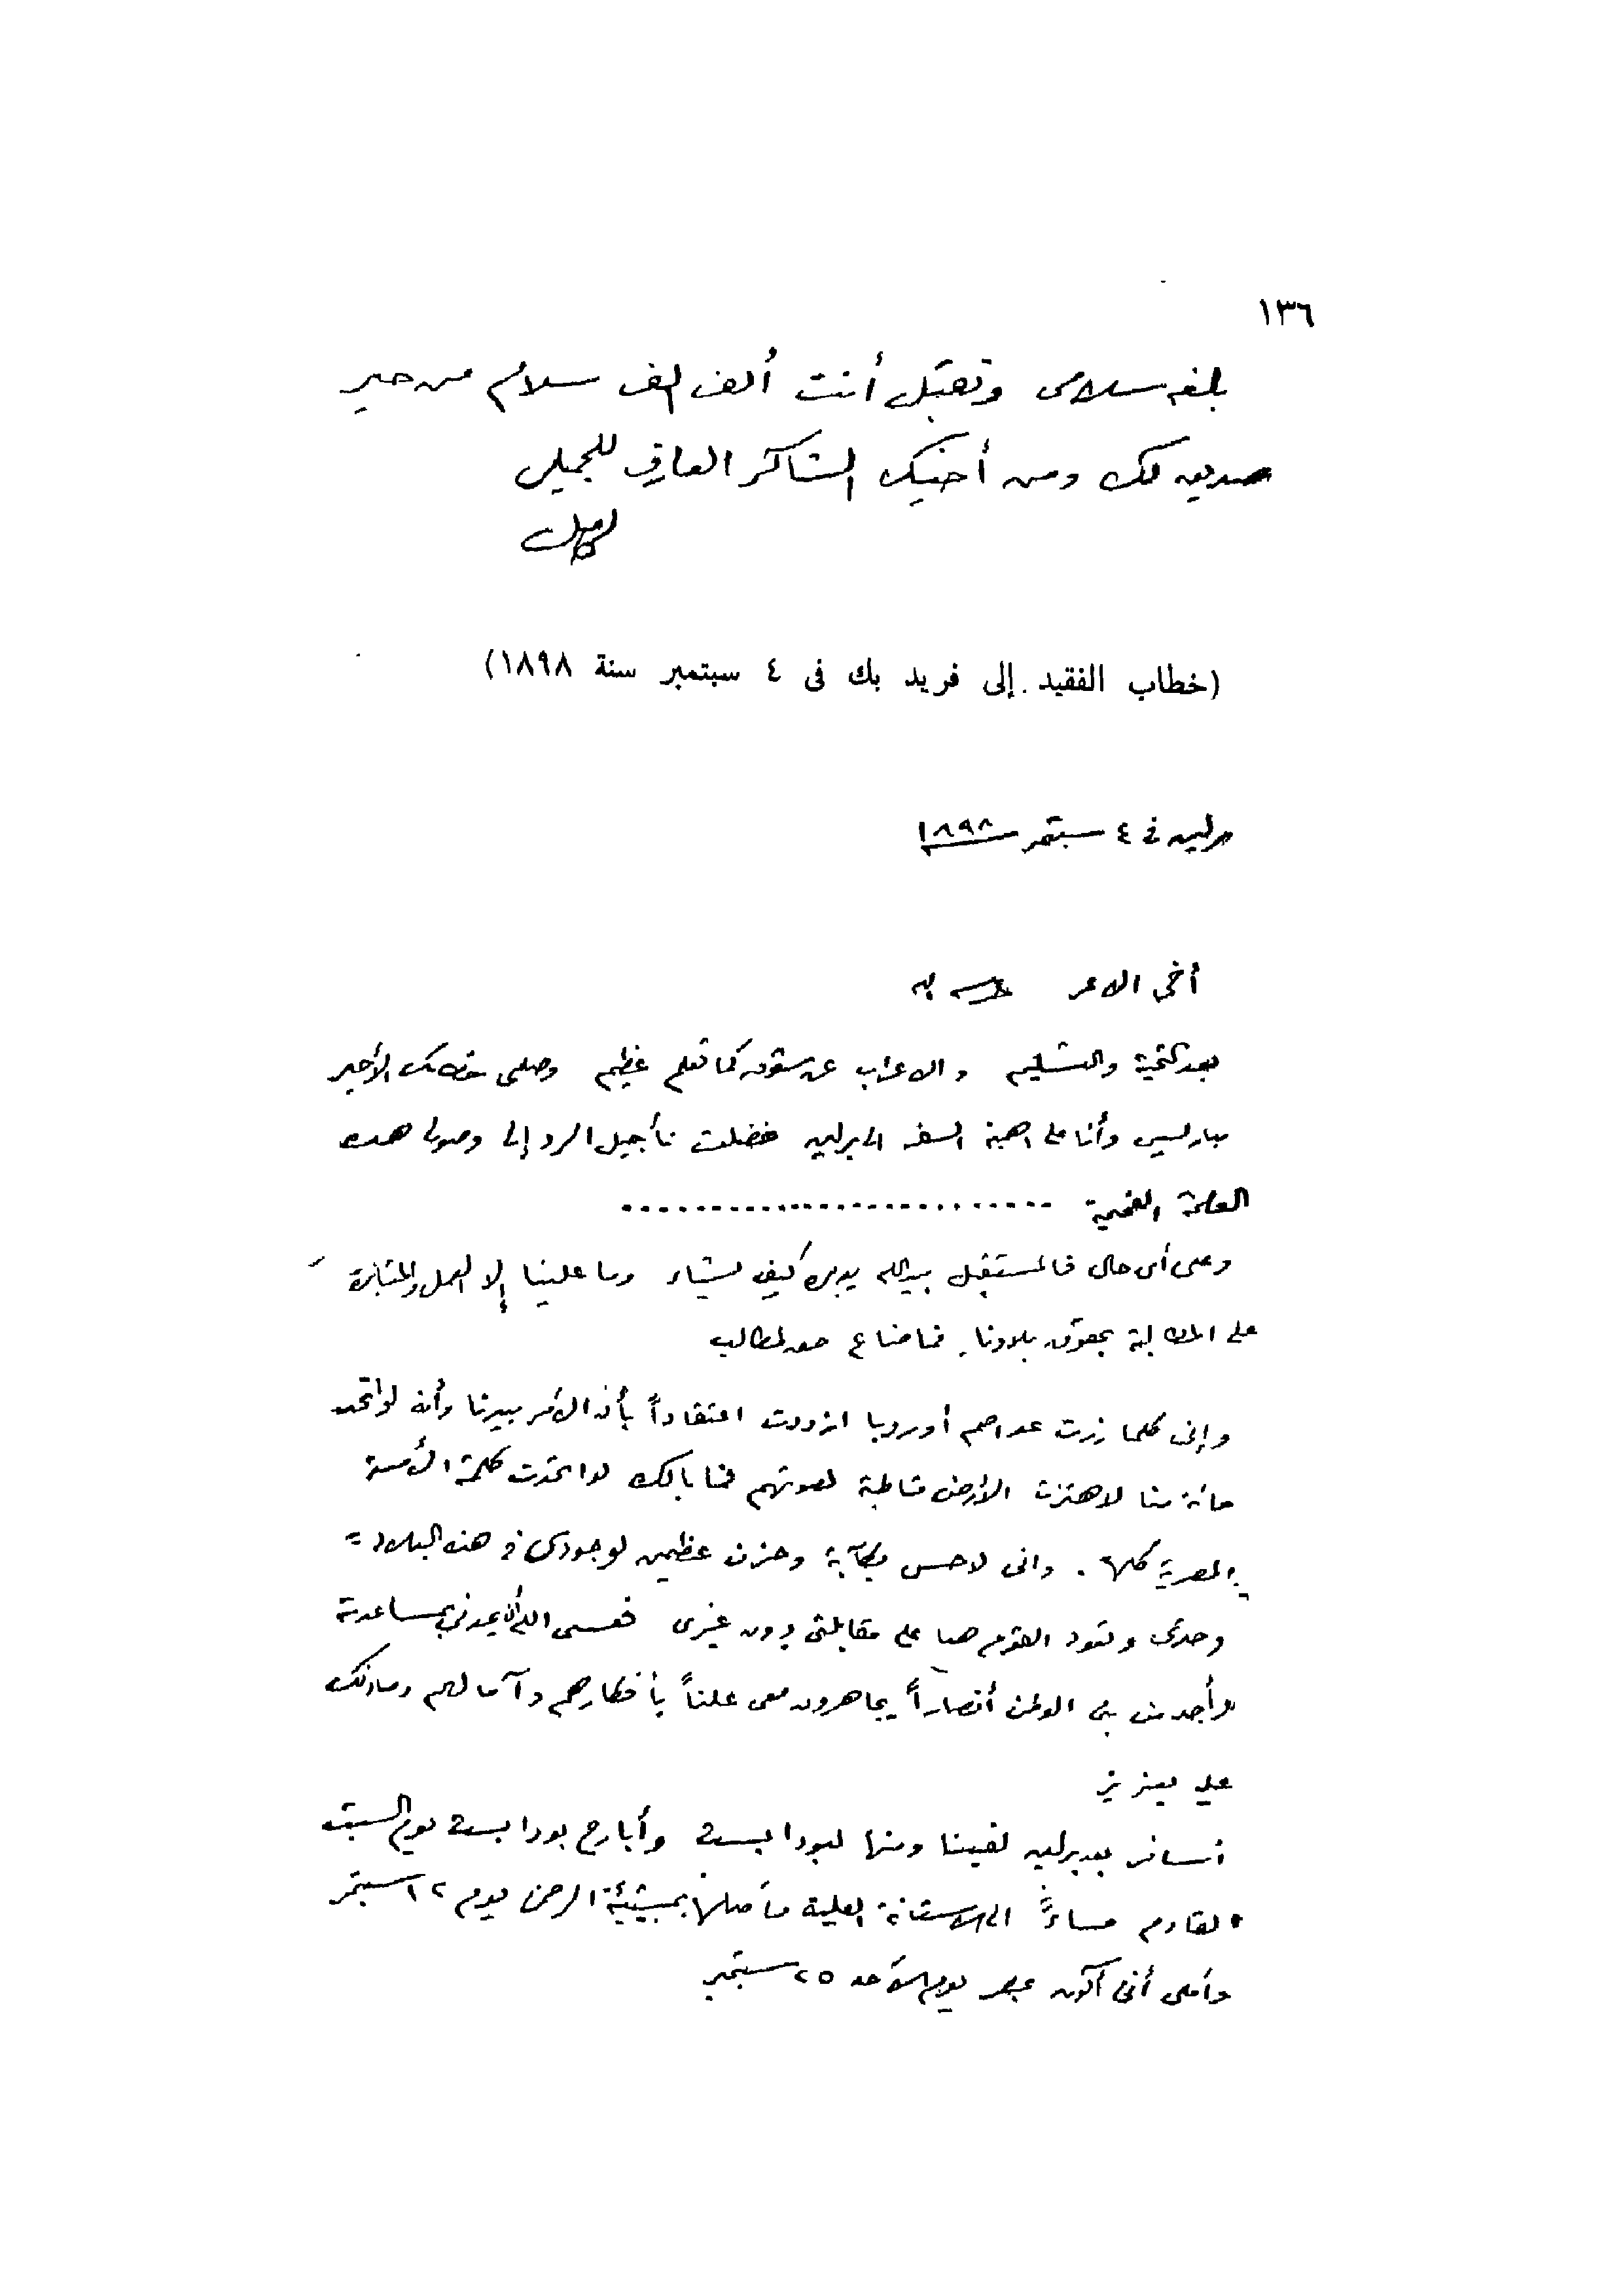 ١٣٦
بلغه سلامى وتقبل أنت ألف ألف سلام من خير
صديق لك ومن أخيك الشاكر العارف للجميل
(خطاب الفقيد إلى فريد بك فى ٤ سبتمبر سنة ١٨٩٨)
برلين فى ٤ سبتمبر ١٨٩٨
أخى الاعز
بعد التحية والتسليم والاعراب عن شوق كما تعلم عظيم وصلنى خطابك الأخير
بباريس وأنا على اهبة السفر الى برلين ففضلت تأجيل الرد إلى وصولى هذه
العاصمة الفخيمة ............................
وعلى أى حال فالمستقبل بيد الله يدبره كيف يشاء وما علينا إلا العمل والمثابرة
على المطالبة بحقوق بلادنا فما ضاع حق لمطالب
وإنى كلما زرت عواصم أوروبا ازددت اعتقاداً بأن الأمر بيدنا وأنه لو اتحد
مائة منا لاهتزت الأرض قاطبة لصوتهم فما بالك لو اتحدت كلمة الأمة
المصرية كلها . وانى لاحس بكآبة وحزن عظيمين لوجودى فى هذه البلاد
وحدى وتعود القوم هنا على مقابلتى بدون غيرى فعسى الله أن يمدنى بمساعدته
فأجد من بنى الوطن أنصاراً يجاهرون معى علناً بأفكارهم وآمالهم وما ذلك
عليه بعزيز
أسافر بعد برلين لفينا ومنها لبودابست وأبارح بودابست يوم السبت
القادم مساءً الى الاستانة العلية فأصلها بمشيئة الرحمن يوم ١٢ سبتمبر
وأملى أنى أكون بمصر يوم الأحد ٢٥ سبتمبر